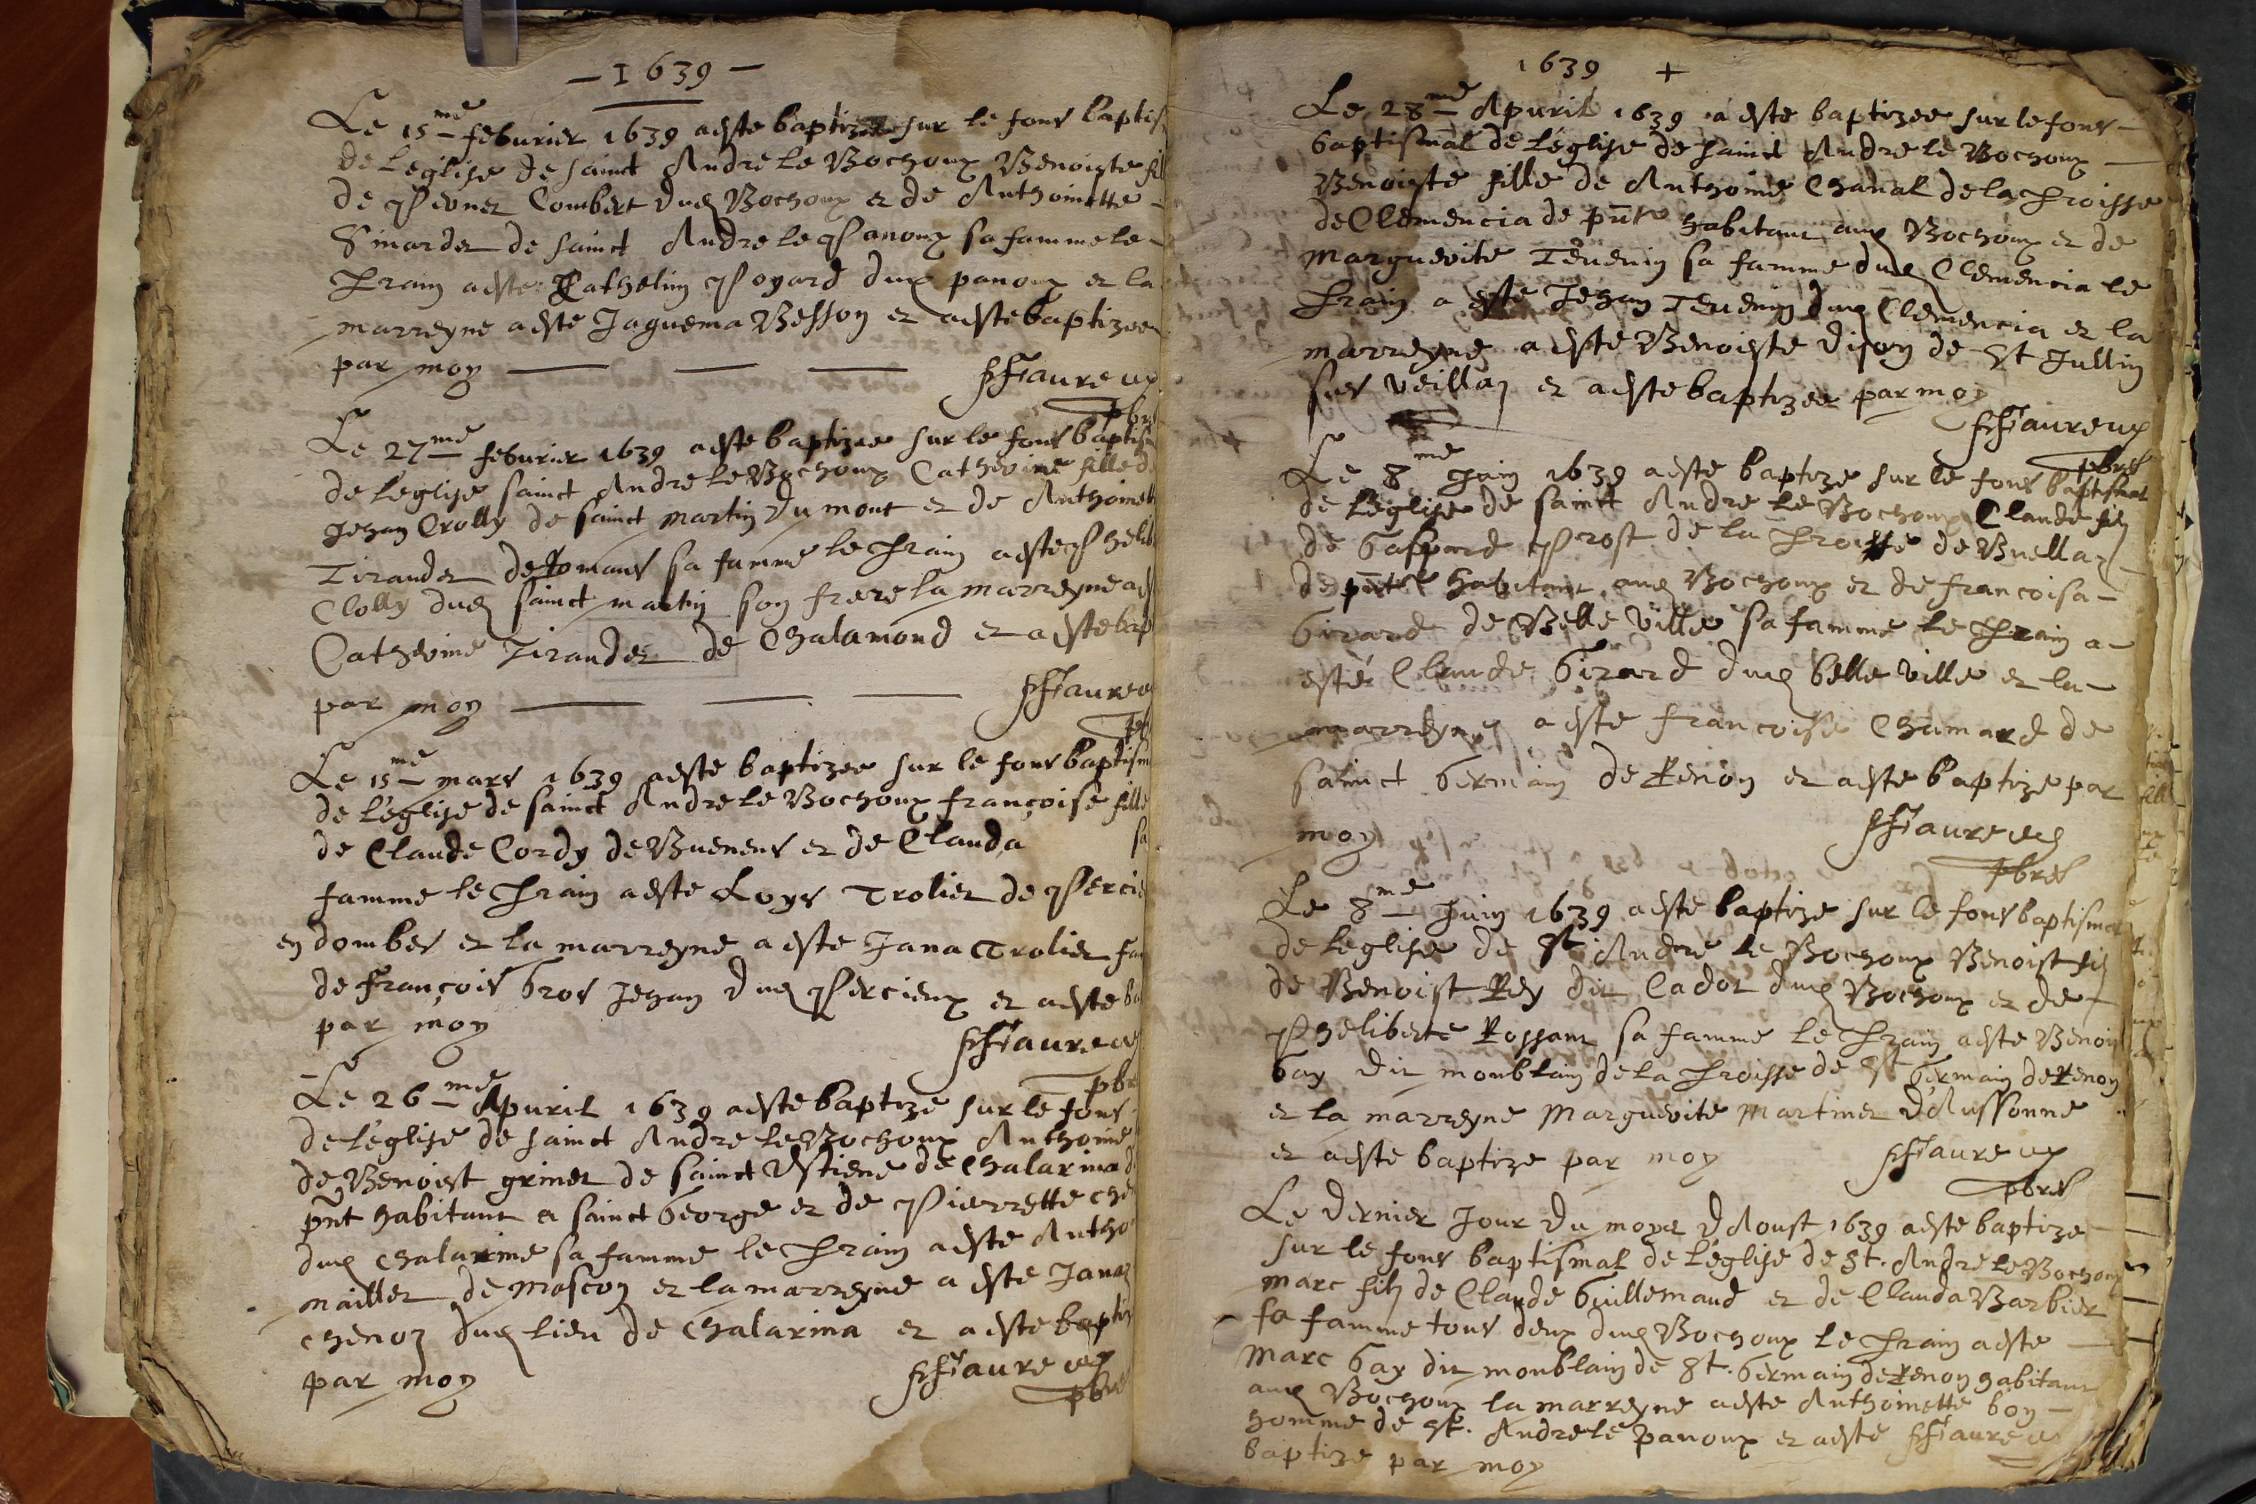 — 1639 —
Le 15me feburier 1639 a este baptizee sur le fons baptis
de leglise de sainct Andre le Bochoux Benoiste fil
de Pevnet Combert dud Bochoux et de Anthoinette
Sinardet de sainct Andre le Panoux sa famme le
Prain a este Cathelin Poyard dud panoux et la
marreyne a este Jaguema Besson et a este baptizee
par moy FFaureux
pbre
Le 27me feburier 1639 a este baptizee sur le fons baptis
de leglise sainct Andre le Bochoux Catherine fille d
Jehan Crolly de sainct martin du mont et de Anthoinet
Tirandet de Romans sa famme le Prain a este Phelib
Clolly dud sainct martin son frere la marreyne a e
Catherine Tirandet de Chalamond et a este bap
par moy FFaureux
pbre
Le 15me mars 1639 a este baptizee sur le fons baptism
de leglise de sainct Andre le Bochoux françoise fille
de Claude Cordy de Buenens et de Clauda sa
famme le Prain a este Loys Trolier de Percie
en dombes et la marreyne a este Jana Trolier fa
de françois Gros Jehan dud Percieux et a este ba
par moy
FFaureux
pbre
Le 26me Apuril 1639 a este baptize sur le fons
de leglise de sainct Andre le Bochoux Anthoine
de Benoist grinet de sainct Estiene de Chalarina d
pnt habitant a sainct George et de Pierrette che
dud chalarine sa famme le Prain a este Antho
maillet de mascon et la marreyne a este Jana
chenoz dud lieu de Chalarina et a este baptiz
par moy FFaureux
pbre
1639 +
Le 28me Apuril 1639 a este baptizee sur le fons
baptismal de leglise de sainct Andre le Bochoux
Benoiste fille de Anthoine Chanal de la Proisse
de Clemencia de pnt habitant aud Bochoux et de
marguerite Tevenin sa famme dud Clemencia le
Prain a este Jehan Tevenin dud Clemencia et la
marreyne a este Benoiste Dijon de St Jullin
sus veillaz et a este baptizee par moy
FFaureux
pbre
Le 8me Juin 1639 a este baptize sur le fons baptismal
de leglise de sainct Andre le Bochoux Claude filz
de Gaspard Prost de la Proisse de Buellaz
de pnt habitant aud Bochoux et de francoisa
Girard de Belle ville sa famme le Prain a
esté Claude Girard dud belle ville et la
marreyne a este francoise Chamard de
sainct Germain de Renon et a este baptize par
moy FFaureux
pbre
Le 8me Juin 1639 a este baptize sur le fons baptismal
de leglise de St Andre le Bochoux Benoist filz
de Benoist Rey dit Cadot dud Bochoux et de
Pheliberte Rossant sa famme le Prain a este Benoi
Gay dit monblain de la Proisse de St Germain de Renon
et la marreyne Marguerite Martinet d'Aussonne
et a este baptize par moy FFaureux
pbre
Le dernier Jour du moys d'Aoust 1639 a este baptize
sur le fons baptismal de leglise de St. Andre le Bochoux
Marc filz de Claude Guillemaud et de Clauda Barbier
sa famme tous deux dud Bochoux le Prain a este
Marc Gay dit monblain de St. Germain de Renon habitant
aud Bochoux la marreyne a este Anthoinette bon
homme de St. Andre le panoux et a este FFaureux
baptize par moy